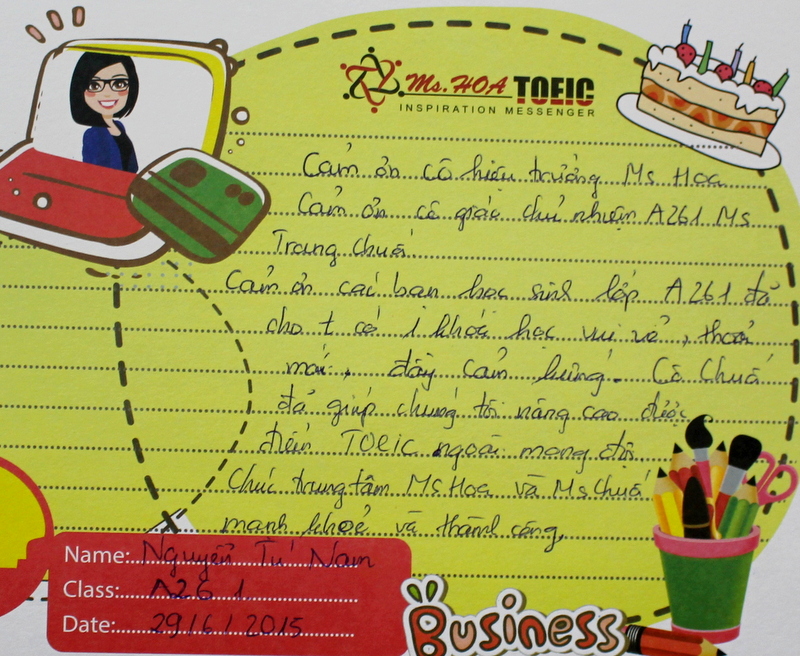 Ms. HOA TOEIC
INSPIRATION MESSENGER
Cảm ơn cô hiệu trưởng Ms Hoa
Cảm ơn cô giáo chủ nhiệm A261 Ms
Trang chuối
Cảm ơn các bạn học sinh lớp A261 đã
cho t có 1 khoá học vui vẻ, thoải
mái, đầy cảm hứng. Cô Chuối
đã giúp chúng tôi nâng cao được
điểm TOEIC ngoài mong đợi.
Chúc trung tâm Ms Hoa và Ms Chuối
mạnh khoẻ và thành công,
Name: Nguyễn Tú Nam
Class: A261
Date: 29/6/2015
Business